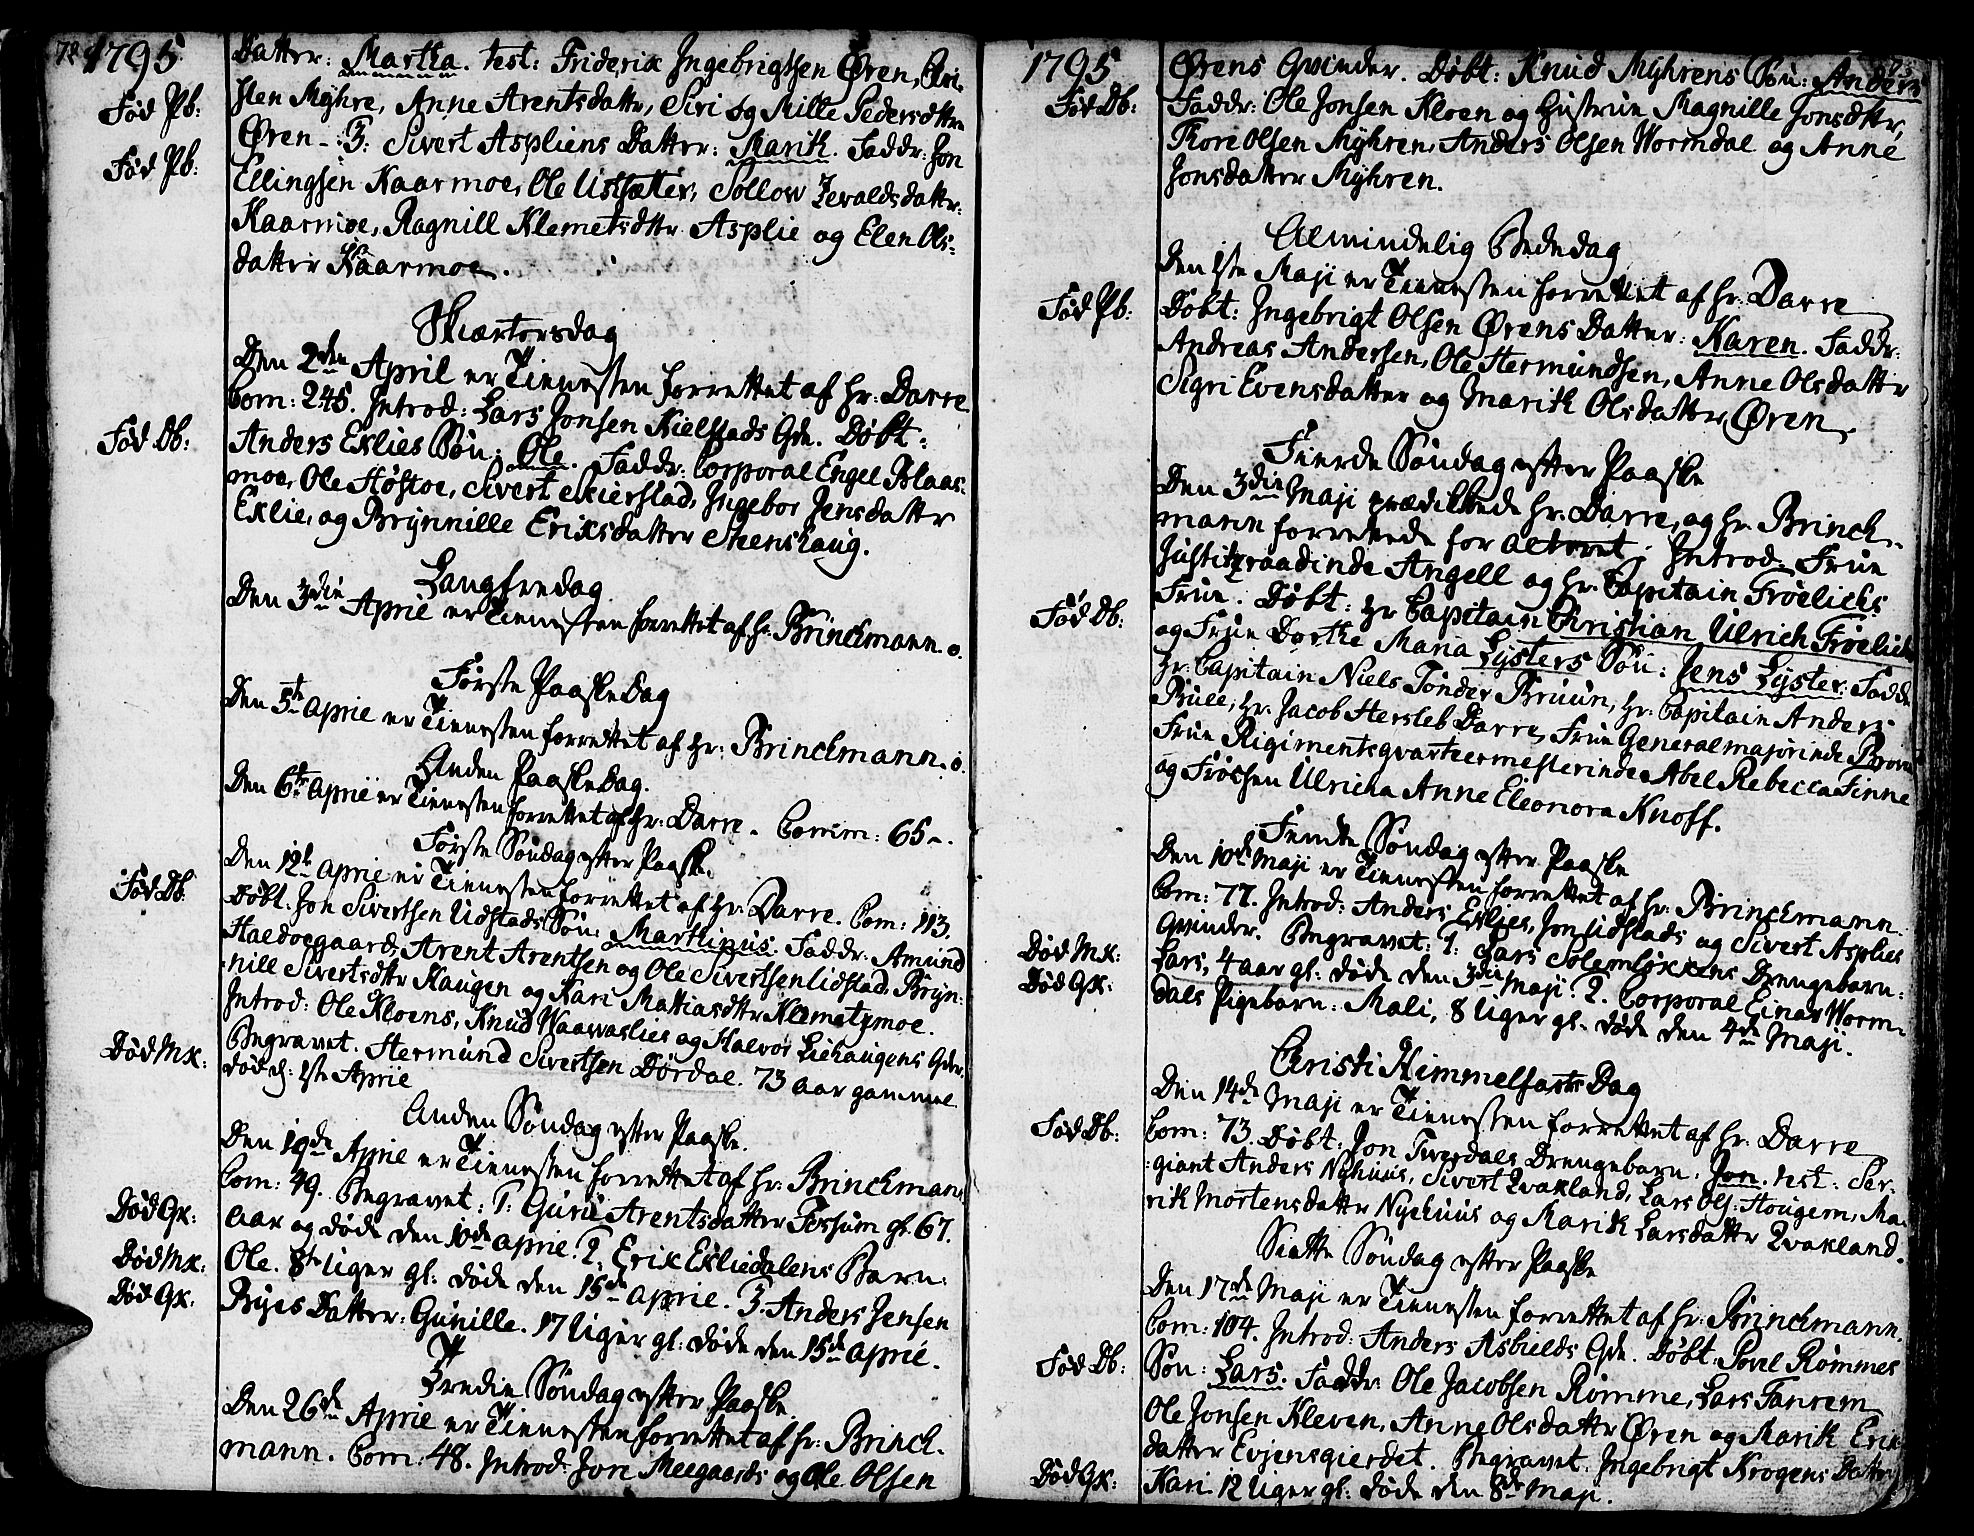 72 1795
Datter: Martha. test: Friderix Ingebrigtsen Øren, Chri-
Fød Pb:
sten Myhre, Anne Arentsdattr, Siri og Mille Pedersdttr
Øren - 3: Sivert Aspliens Datter: Marit. Faddr: Jon
Fød Pb:
Ellingsen Kaarmoe, Ole Utsætter, Sollow Zevaldsdattr:
Kaarmoe, Ragnill Klemetsdttr Asplie og Elen Ols-
datter Kaarmoe.
Skiærtorsdag
Den 2den April er Tienesten forrettet af hr: Darre
Com: 245. Introd: Lars Jonsen Kielstads Qde. Døbt:
Fød Db:
Anders Exlies Søn: Ole. Faddr: Corporal Engel Blaas-
moe, Ole Høstoe, Sivert Skierstad, Ingebor Jensdattr
Exlie, og Brynnille Erixsdatter Stenshaug.
Langfredag
Den 3die April er Tienesten forrettet af hr: Brinchmann. o.
Første Paaske Dag
Den 5te April er Tienesten forrettet af hr: Brinchmann. o.
Anden Paaske Dag.
Den 6te April er Tienesten forrettet af hr: Darre. Comm: 65-.
Første Søndag efter Paaske.
Den 12te April er Tienesten forrettet af hr: Darre. Com: 113.
Fød Db
Døbt. Jon Sivertsen Lidstads Søn: Marthinus. Faddr: Amund
Haldoegaard, Arent Arentsen og Ole Sivertsen Lidstad, Bryn-
nill Sivertsdttr Haugen og Kari Mattiasdttr Klemetzmoe.
Introd: Ole Kloens, Knud Waawaslies og Halvor Liehaugens Qdr.
Død Mk:
Begravet. Hermund Sivertsen Dørdal. 73 aar gammel
død d: 1ste April
Anden Søndag efter Paaske.
Den 19de April er Tienesten forrettet af hr: Brinchman
Com: 49. Begravet: 1: Guru Arentsdatter Fossum gl. 67.
Død Qk:
aar og døde den 10de april. 2: Erik Exliedalens Barn:
Død Mk:
Ole. 8te uger gl: døde den 15de april. 3. Anders Jensen
Død Qk:
Byes Datter: Gunille. 17 uger gl: døde den 15de april.
Tredie Søndag efter Paaske
Den 26de April er Tienesten forrettet af hr: Brinch-
mann. Com: 48. Introd: Jon Meegaards og Ole Olsen
1795
Ørens Qvinder. Døbt: Knud Myhrens Søn: Anders
Fød Db:
Faddr: Ole Jonsen Kloen og Hustrue Magnille Jonsdttr,
Thore Olsen Myhren, Anders Olsen Wormdal og Anne
Jonsdatter Myhren.
Almindelig Bededag
Den 1ste Maji er Tienesten forrettet af hr: Darre
Fød Pb:
Døbt: Ingebrigt Olsen Ørens Datter: Karen. Faddr:
Andreas Andersen, Ole Hermundsen, Anne Olsdattr
Sigri Evensdatter og Marit Olsdatter Øren.
Fierde Søndag efter Paaske
Den 3die Maji prædikede hr: Darre, og hr: Brinch-
mann forrettede for alteret; Introd: Frue
Justitzraadinde Angell og hr: Capitain Frøelichs
Frue. Døbt: hr Capitain Christian Ulrich Frøelich
Fød Db:
og Frue Dorthe Maria Lysters Søn: Jens Lyster: Faddr
hr: Capitain Niels Tønder Bruun, hr: Capitain Anders
Bull, hr: Jacob Hersleb Darre, Frue Generalmajorinde
Frue Rigimentsqvarteermesterinde Abel Rebecca Finne
og Frøchen Ulricha Anne Eleonora Knoff.
Femte Søndag efter Paaske
Den 10de Maji er Tienesten forrettet af hr: Brinchmann.
Com: 77. Introd: Anders Exlies, Jon Lidstads og Sivert Asplies
Qvinder. Begravet: 1: Lars Solemsixxens Drengebarn:
Død Mk:
Lars, 4 aar gl: døde den 3die Maji. 2. Corporal Einar Worm-
Død Qk:
dals Pigebarn: Mali, 8 uger gl: døde den 4de Maji.
Christi Himmelfarts Dag
Den 14de Maji er Tienesten forrettet af hr: Darre
Com: 73. Døbt: Jon Tverdals Drengebarn. Jon. test: Ser-
Fød Db:
giant Anders Nyhuus, Sivert Qvakland, Lars Ols: Hougem, Ma-
rik Mortensdatter Nyehuus og Marik Larsdatter Qvakland.
Siatte Søndag efter Paaske
Den 17de Maji er Tienesten forrettet af hr: Brinchmann.
Com: 104. Introd: Anders Asbields Qde. Døbt: Povel Rømmes
Fød Db:
Søn: Lars. Faddr: Ole Jacobsen Rømme, Lars Fanrem
Ole Jonsen Kleven, Anne Olsdattr Øren og Marik Erix-
datter Evjensgierdet. Begravet. Ingebrigt Krogens Datter
Død Qk:
Kari. 12 uger gl: døde den 8de Maji.